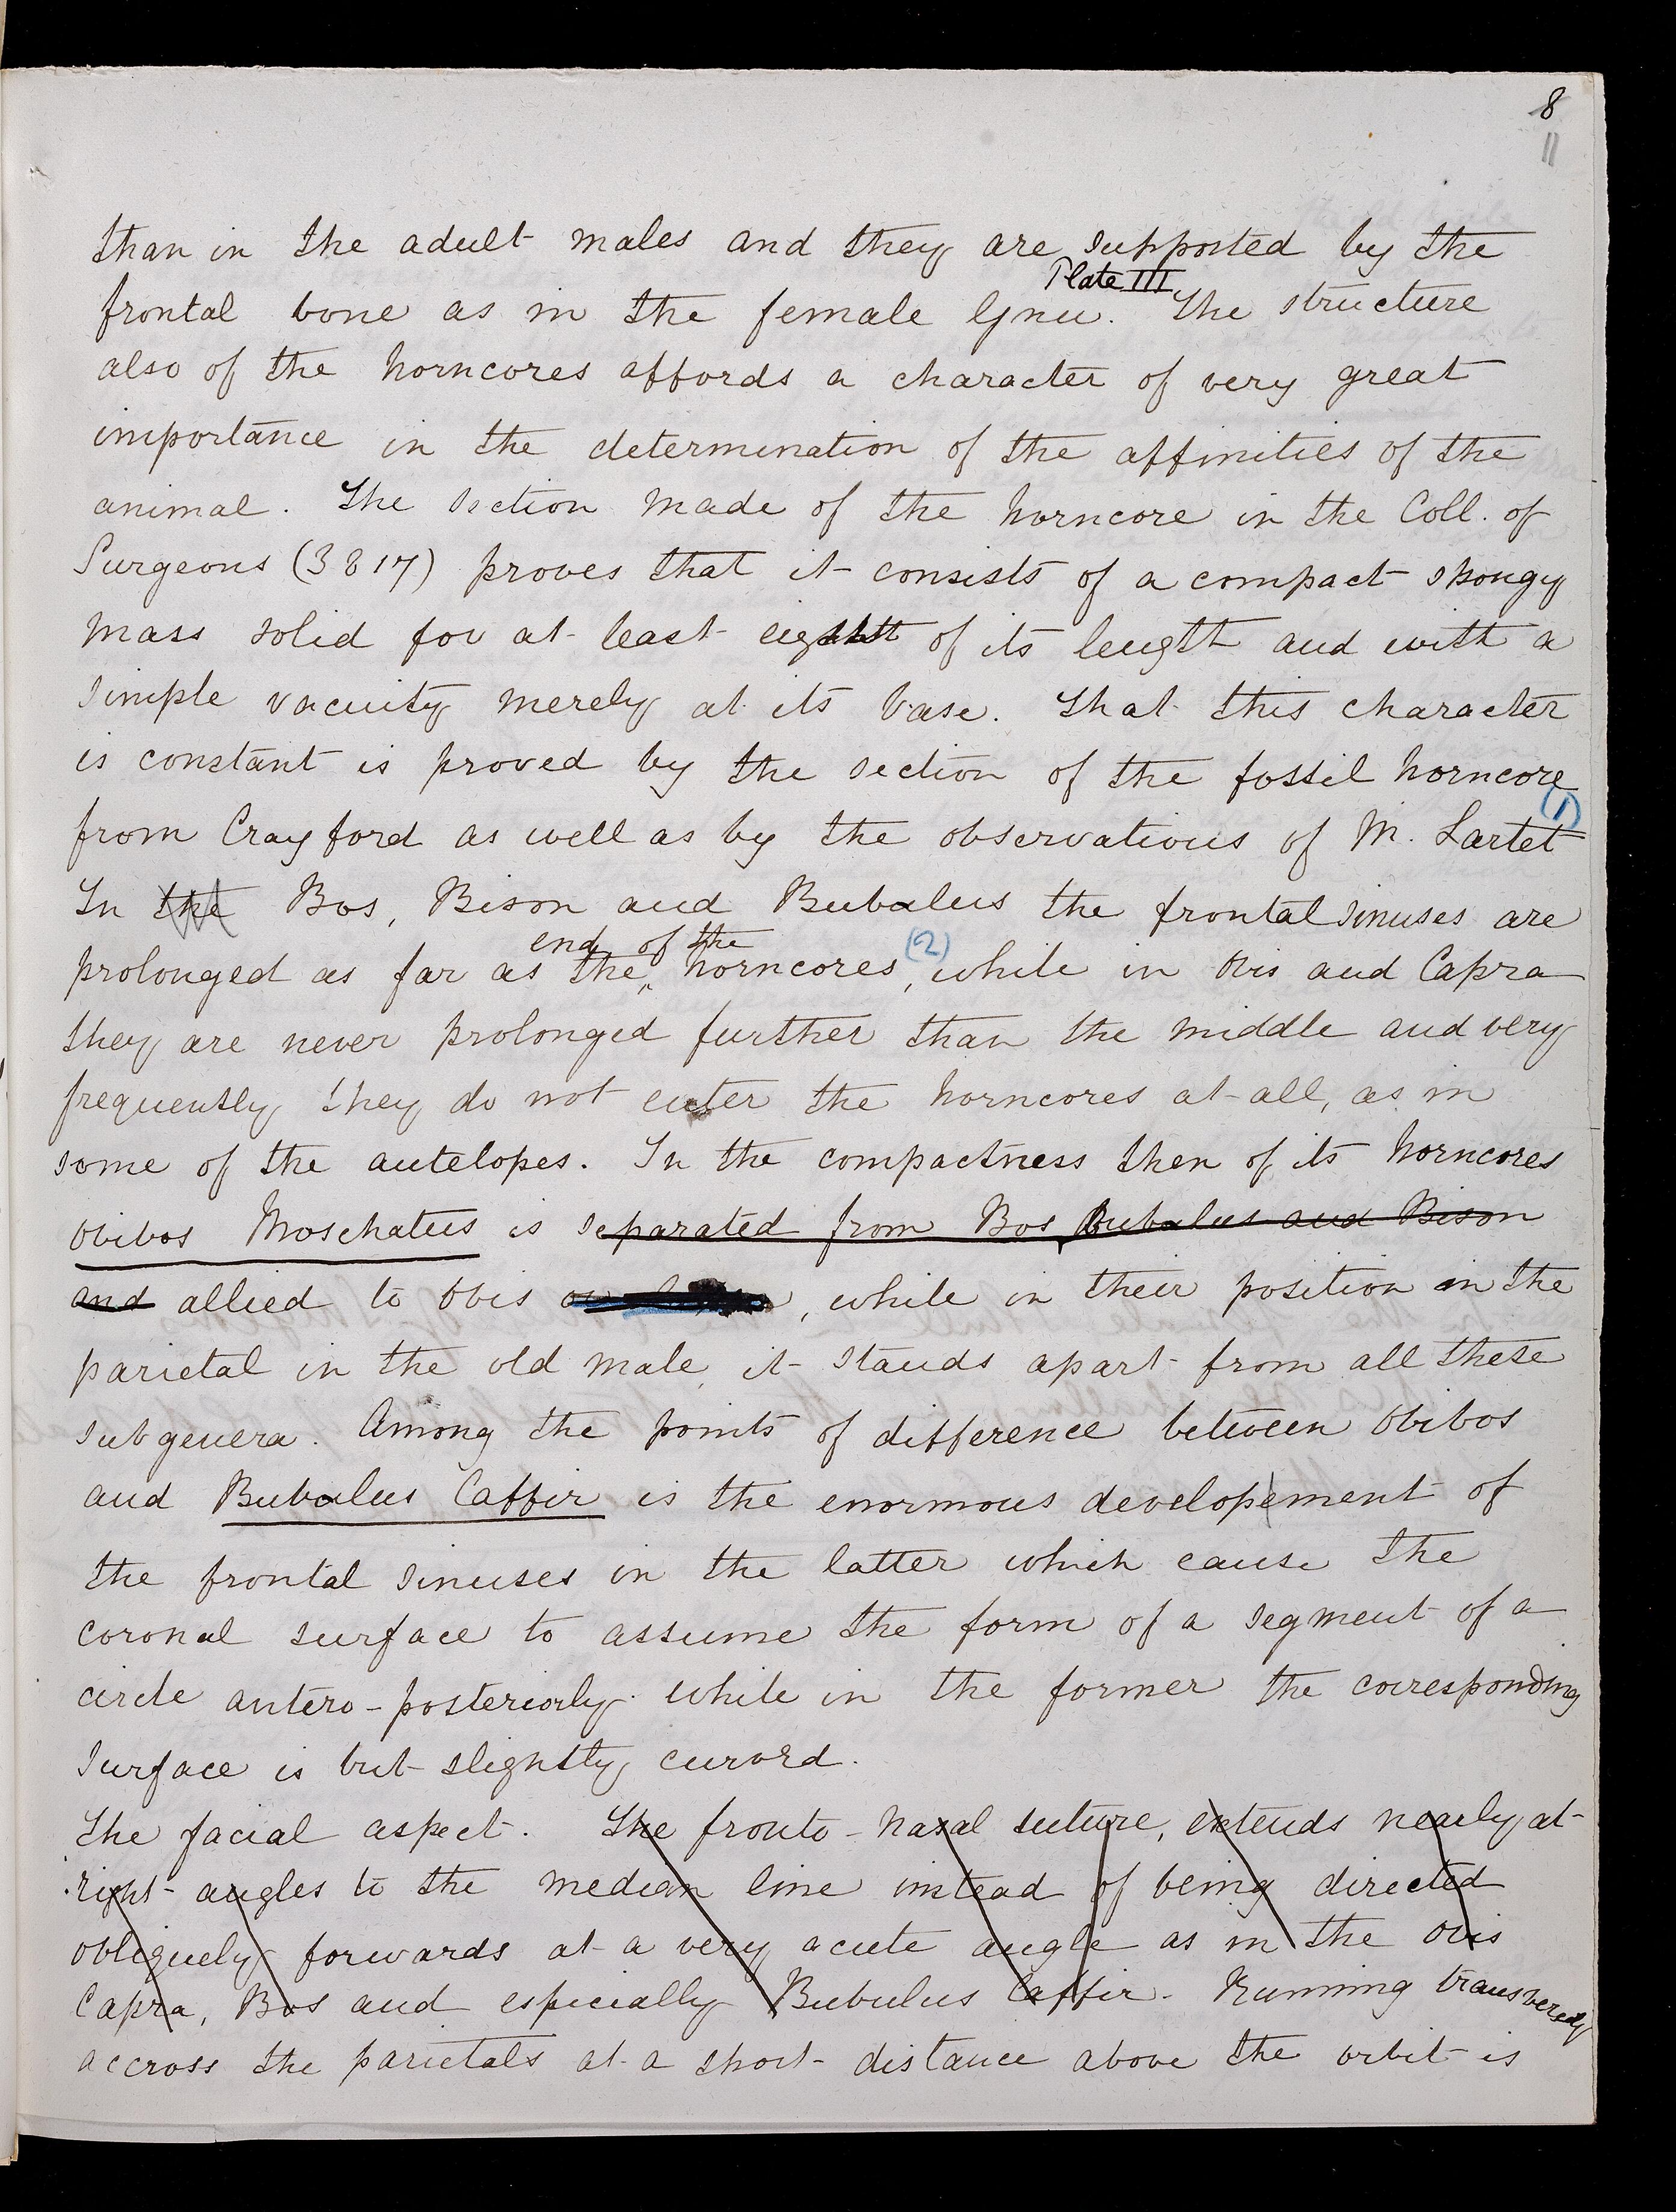 8
11
than in the adult males and they are supported by the
Plate III
frontal bone as in the female Gnu. The structure
also of the horncores affords a character of very great
importance in the determination of the affinities of the
animal. The section made of the horncore in the Coll. of
Surgeons (3817) proves that it consists of a compact spongy
mass solid for at least of its length and with a
simple vacuity merely at its base. That this character
is constant is proved by the section of the fossil horncore
(1)
from Crayford as well as by the observations of M. Lartet
In the Bos, Bison and Bubalus the frontal sinuses are
end of the (2)
prolonged as far as the horncores, while in Ovis and Capra
they are never prolonged further than the middle and very
frequently they do not enter the horncores at all, as in
some of the antelopes. In the compactness then of its horncores
Ovibos Moschatus is separated from Bos, Bubalus and Bison
and allied to Ovis , while in their position in the
parietal in the old male it stands apart from all these
subgenera. Among the points of difference between Ovibos
and Bubalus Caffir is the enormous developement of
the frontal sinuses in the latter which cause the
coronal surface to assume the form of a segment of a
circle antero-posteriorly while in the former the corresponding
surface is but slightly curved.
The facial aspect. The fronto-nasal suture, extends nearly at
right angles to the median line instead of being directed
obliquely forwards at a very acute angle as in the Ovis
Capra, Bos and especially Bubulus Caffir. Running transversely
accross the parietals at a short distance above the orbit is